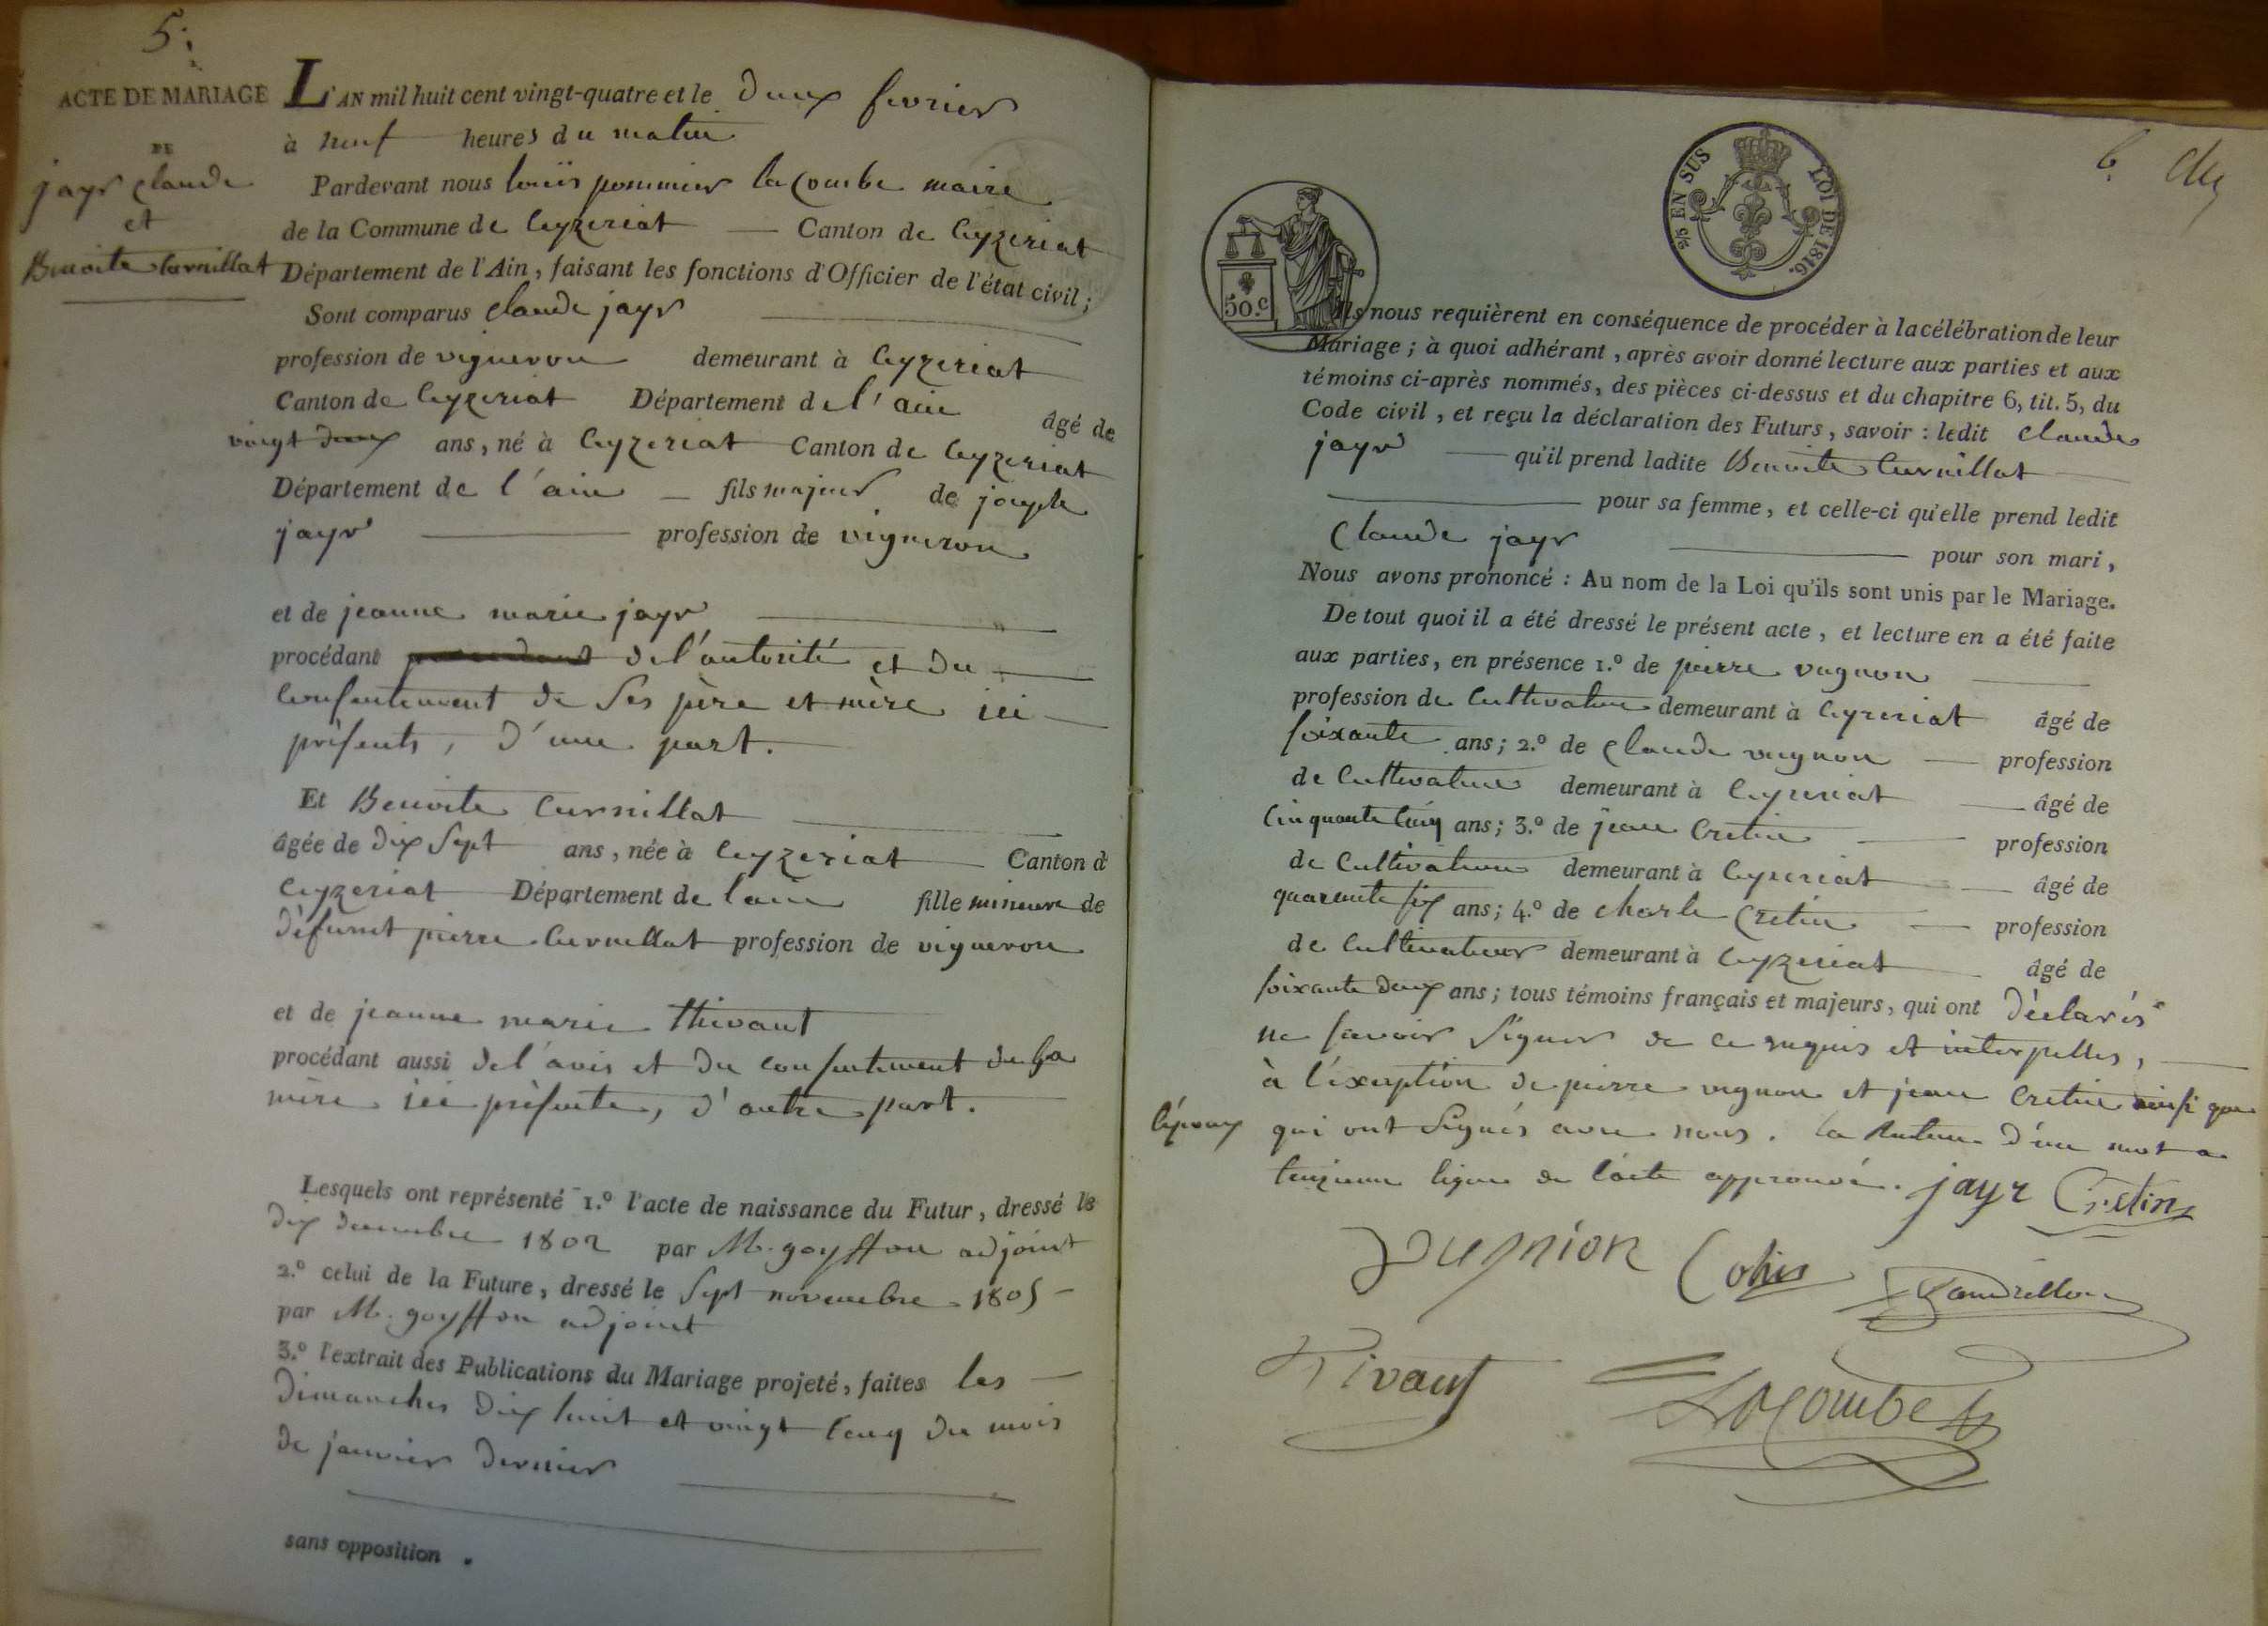 5.
ACTE DE MARIAGE
DE
jayr claude
et
Benoite Curnillat
L'AN mil huit cent vingt-quatre et le deux fevrier
à neuf heures du matin
Pardevant nous louis pommier lacombe maire
de la Commune de Ceyzeriat Canton de Ceyzeriat
Département de l'Ain, faisant les fonctions d'Officier de l'état civil;
Sont comparus claude jayr
profession de vigneron demeurant à Ceyzeriat
Canton de Ceyzeriat Département de l'ain âgé de
vingt deux ans, né à Ceyzeriat Canton de Ceyzeriat
Département de l'ain fils majeur de joseph
jayr profession de vigneron
et de jeanne marie jayr
procédant de l'autorité et du
consentement de ses père et mère ici
présents, d'une part.
Et Benoite Curnillat
âgée de dix sept ans, née à Ceyzeriat Canton d
Ceyzeriat Département de lain fille mineure de
défunt pierre Curnillat profession de vigneron
et de jeanne marie thivant
procédant aussi de l'avis et du consentement de sa
mère ici présente, d'autre part.
Lesquels ont représenté 1.º l'acte de naissance du Futur, dressé le
dix decembre 1802 par M. goyffon adjoint
2.º celui de la Future, dressé le sept novembre 1805
par M. goyffon adjoint
3.º l'extrait des Publications du Mariage projeté, faites les
dimanches dix huit et vingt cinq du mois
de janvier dernier
sans opposition.
6.
2/5 EN SUS
LOI DE 1816.
50.c
Ils nous requièrent en conséquence de procéder à la célébration de leur
Mariage; à quoi adhérant, après avoir donné lecture aux parties et aux
témoins ci-après nommés, des pièces ci-dessus et du chapitre 6, tit. 5, du
Code civil, et reçu la déclaration des Futurs, savoir: ledit claude
jayr qu'il prend ladite Benoite Curnillat
pour sa femme, et celle-ci qu'elle prend ledit
Claude jayr pour son mari,
Nous avons prononcé: Au nom de la Loi qu'ils sont unis par le Mariage.
De tout quoi il a été dressé le présent acte, et lecture en a été faite
aux parties, en présence 1.º de pierre vugnon
profession de cultivateur demeurant à Ceyzeriat âgé de
soixante ans; 2.º de claude vugnon profession
de Cultivateur demeurant à Ceyzeriat âgé de
cinquante cinq ans; 3.º de jean Cretin profession
de Cultivateur demeurant à Ceyzeriat âgé de
quarente six ans; 4.º de charle Cretin profession
de cultivateur demeurant à Ceyzeriat âgé de
soixante deux ans; tous témoins français et majeurs, qui ont déclarés
ne savoir signer de ce requis et interpellés,
à l'exeption de pierre vugnon et jean Cretin ainsi que
l'époux qui ont signés avec nous. la rature d'un mot a
ligne de l'acte approuvé. jayr Cretin
Vugnion Cohin
Tivant Lacombe